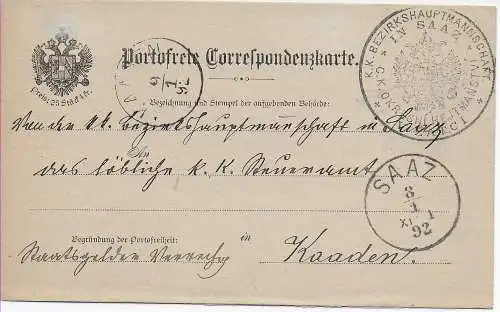 Portofreie Correspondenzkarte.
Preis: 25 Stück 1 fr.
K.K. BEZIRKSHAUPTMANNSCHAFT
IN SAAZ
9
1
92
Bezeichnung und Stempel der aufgebenden Behörde:
Von der kk. Bezirkshauptmannschaft in Saaz
An
das löbliche k. k. Steueramt
SAAZ
8
1
XI 1
92
Begründung der Portofreiheit:
in
Staatsgelder Verrechg
Kaaden.